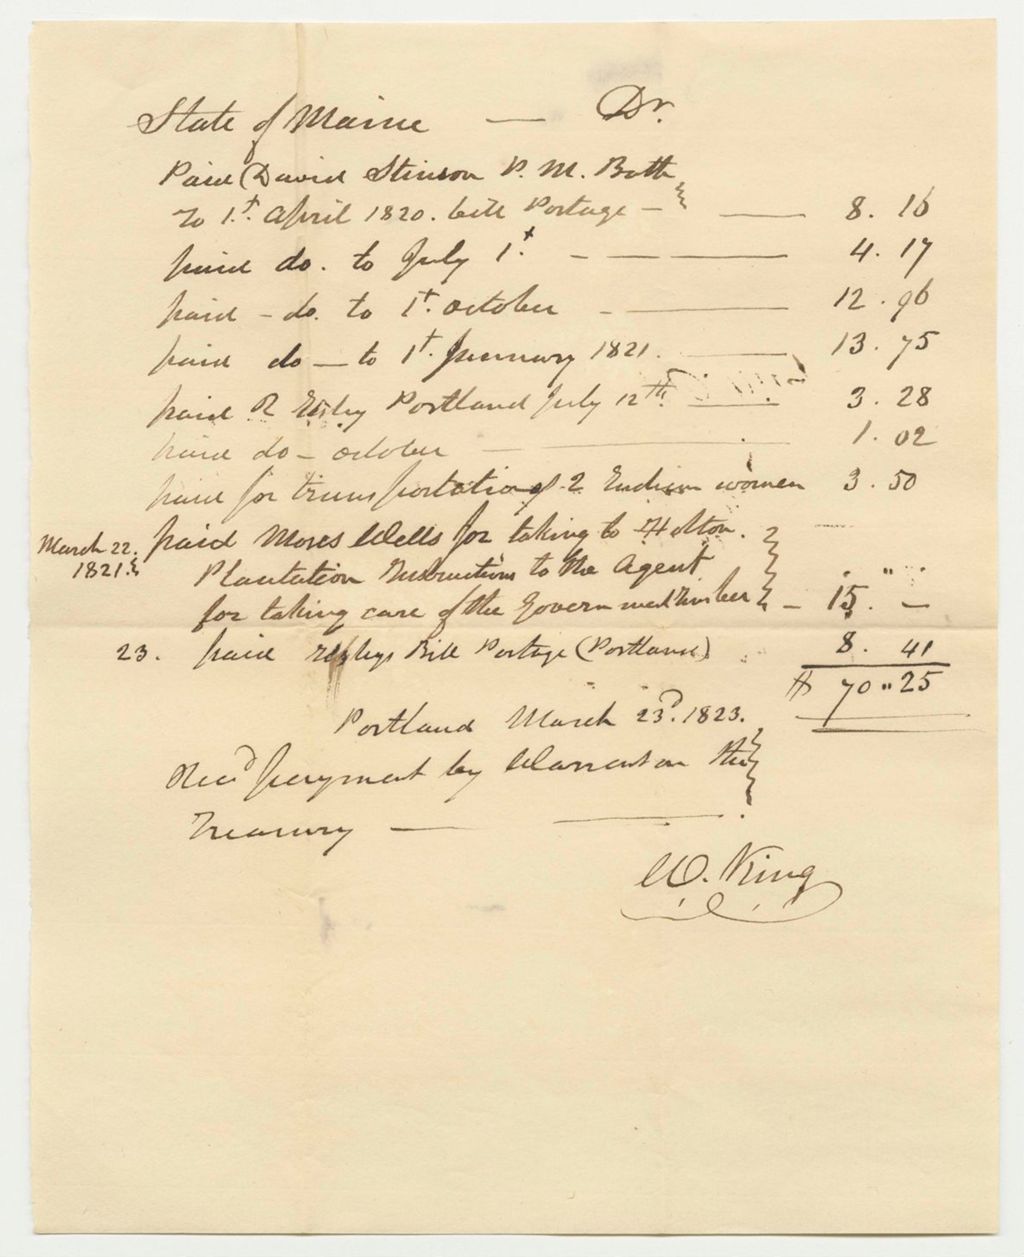 State of Maine — Dr.
Paid David Stinson P. M. Bath
To 1st. April 1820. bill Postage — 8. 16
paid do. to July 1st — 4. 17
paid - do. to 1st. october — 12. 96
paid do — to 1st. January 1821. — 13. 75
paid R Ilsley Portland July 12th. — 3. 28
paid do - october — 1. 02
paid for transportation of 2 Indian women 3. 50
March 22. 1821. paid Moses Wells for taking to Holton.
Plantation Instructions to the Agent
for taking care of the Government Timber — 15. —
23. paid Ilsleys Bill Postage (Portland) 8. 41
$ 70 " 25
Portland March 23d. 1823.
Recd payment by Warrant on the
Treasury —
W. King